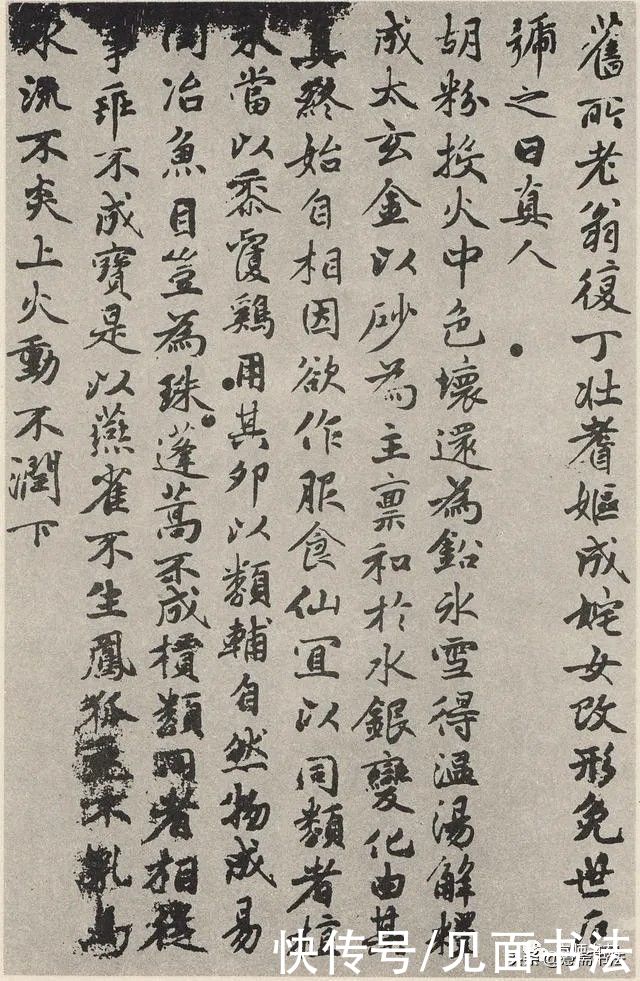 舊所老翁復丁壯耆嫗成姹女改形免世厄
號之曰真人
胡粉投火中色壞還為鉛氷雪得温湯解釋
成太玄金以砂為主禀和於水銀變化由其
真終始自相因欲作服食仙宜以同類者植
禾當以黍覆鷄用其卵以類輔自然物成易
陶冶魚目豈為珠蓬蒿不成檟類同者相從
事乖不成寶是以燕雀不生鳳狐兔不乳馬
水流不炎上火動不潤下
快传号/见面书法